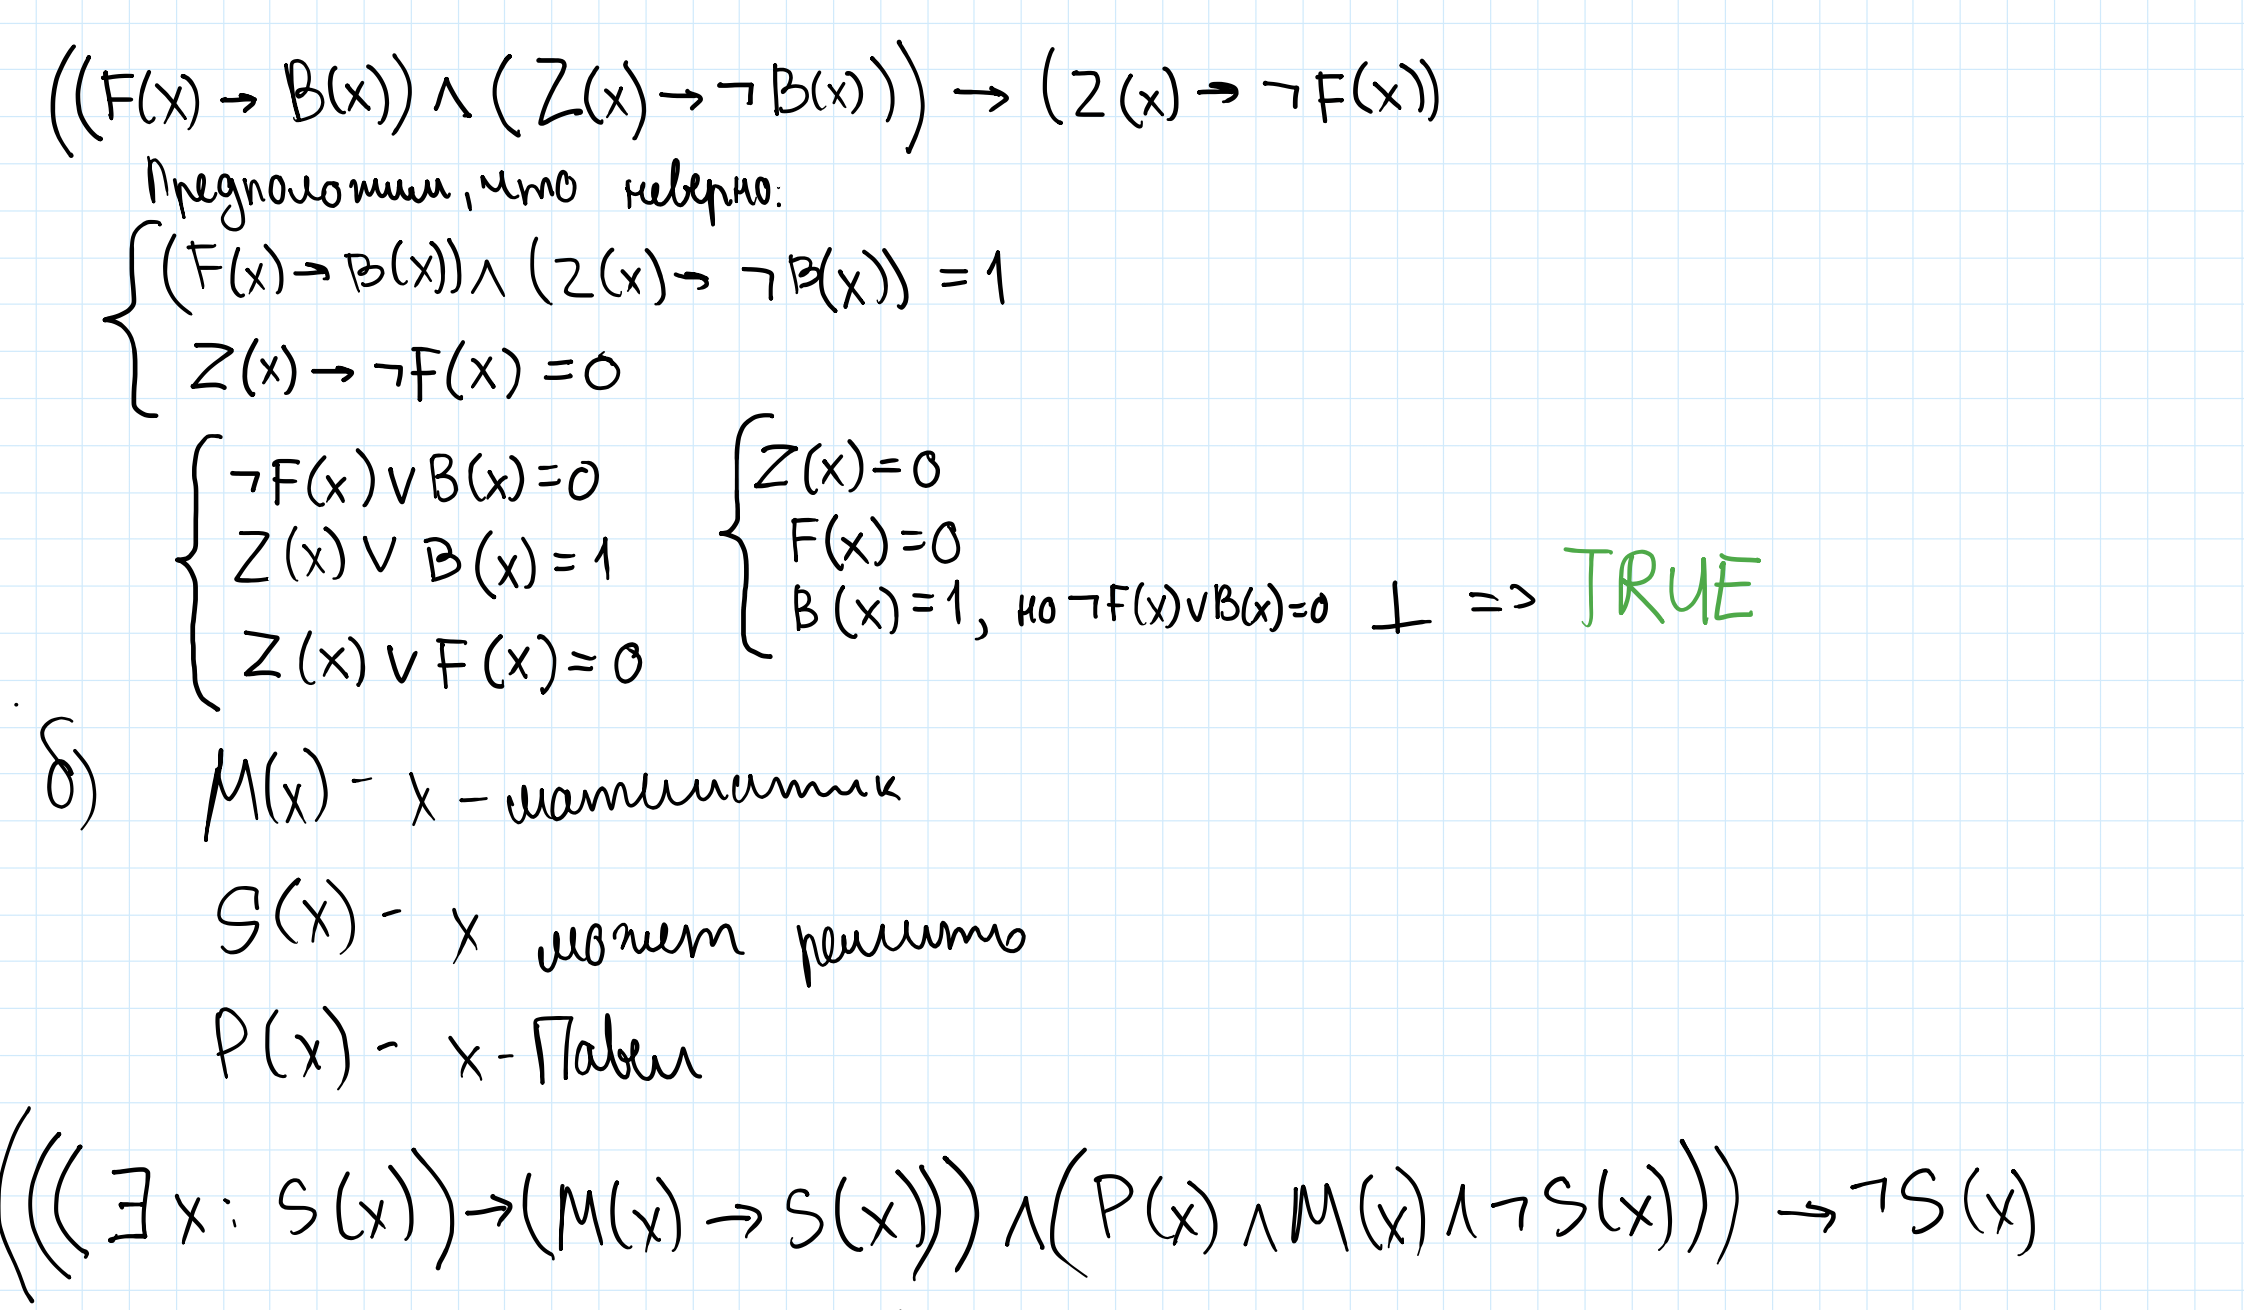 ((F(x) → B(x)) ∧ (Z(x) → ¬B(x))) → (Z(x) → ¬F(x))
Предположим, что неверно:
(F(x) → B(x)) ∧ (Z(x) → ¬B(x)) = 1
Z(x) → ¬F(x) = 0
¬F(x) ∨ B(x) = 0
Z(x) ∨ B(x) = 1
Z(x) ∨ F(x) = 0
Z(x) = 0
F(x) = 0
B(x) = 1, но ¬F(x) ∨ B(x) = 0 ⊥ => TRUE
б) M(x) - x - математик
S(x) - x может решить
P(x) - x - Павел
(((∃x: S(x)) → (M(x) → S(x))) ∧ (P(x) ∧ M(x) ∧ ¬S(x))) → ¬S(x)